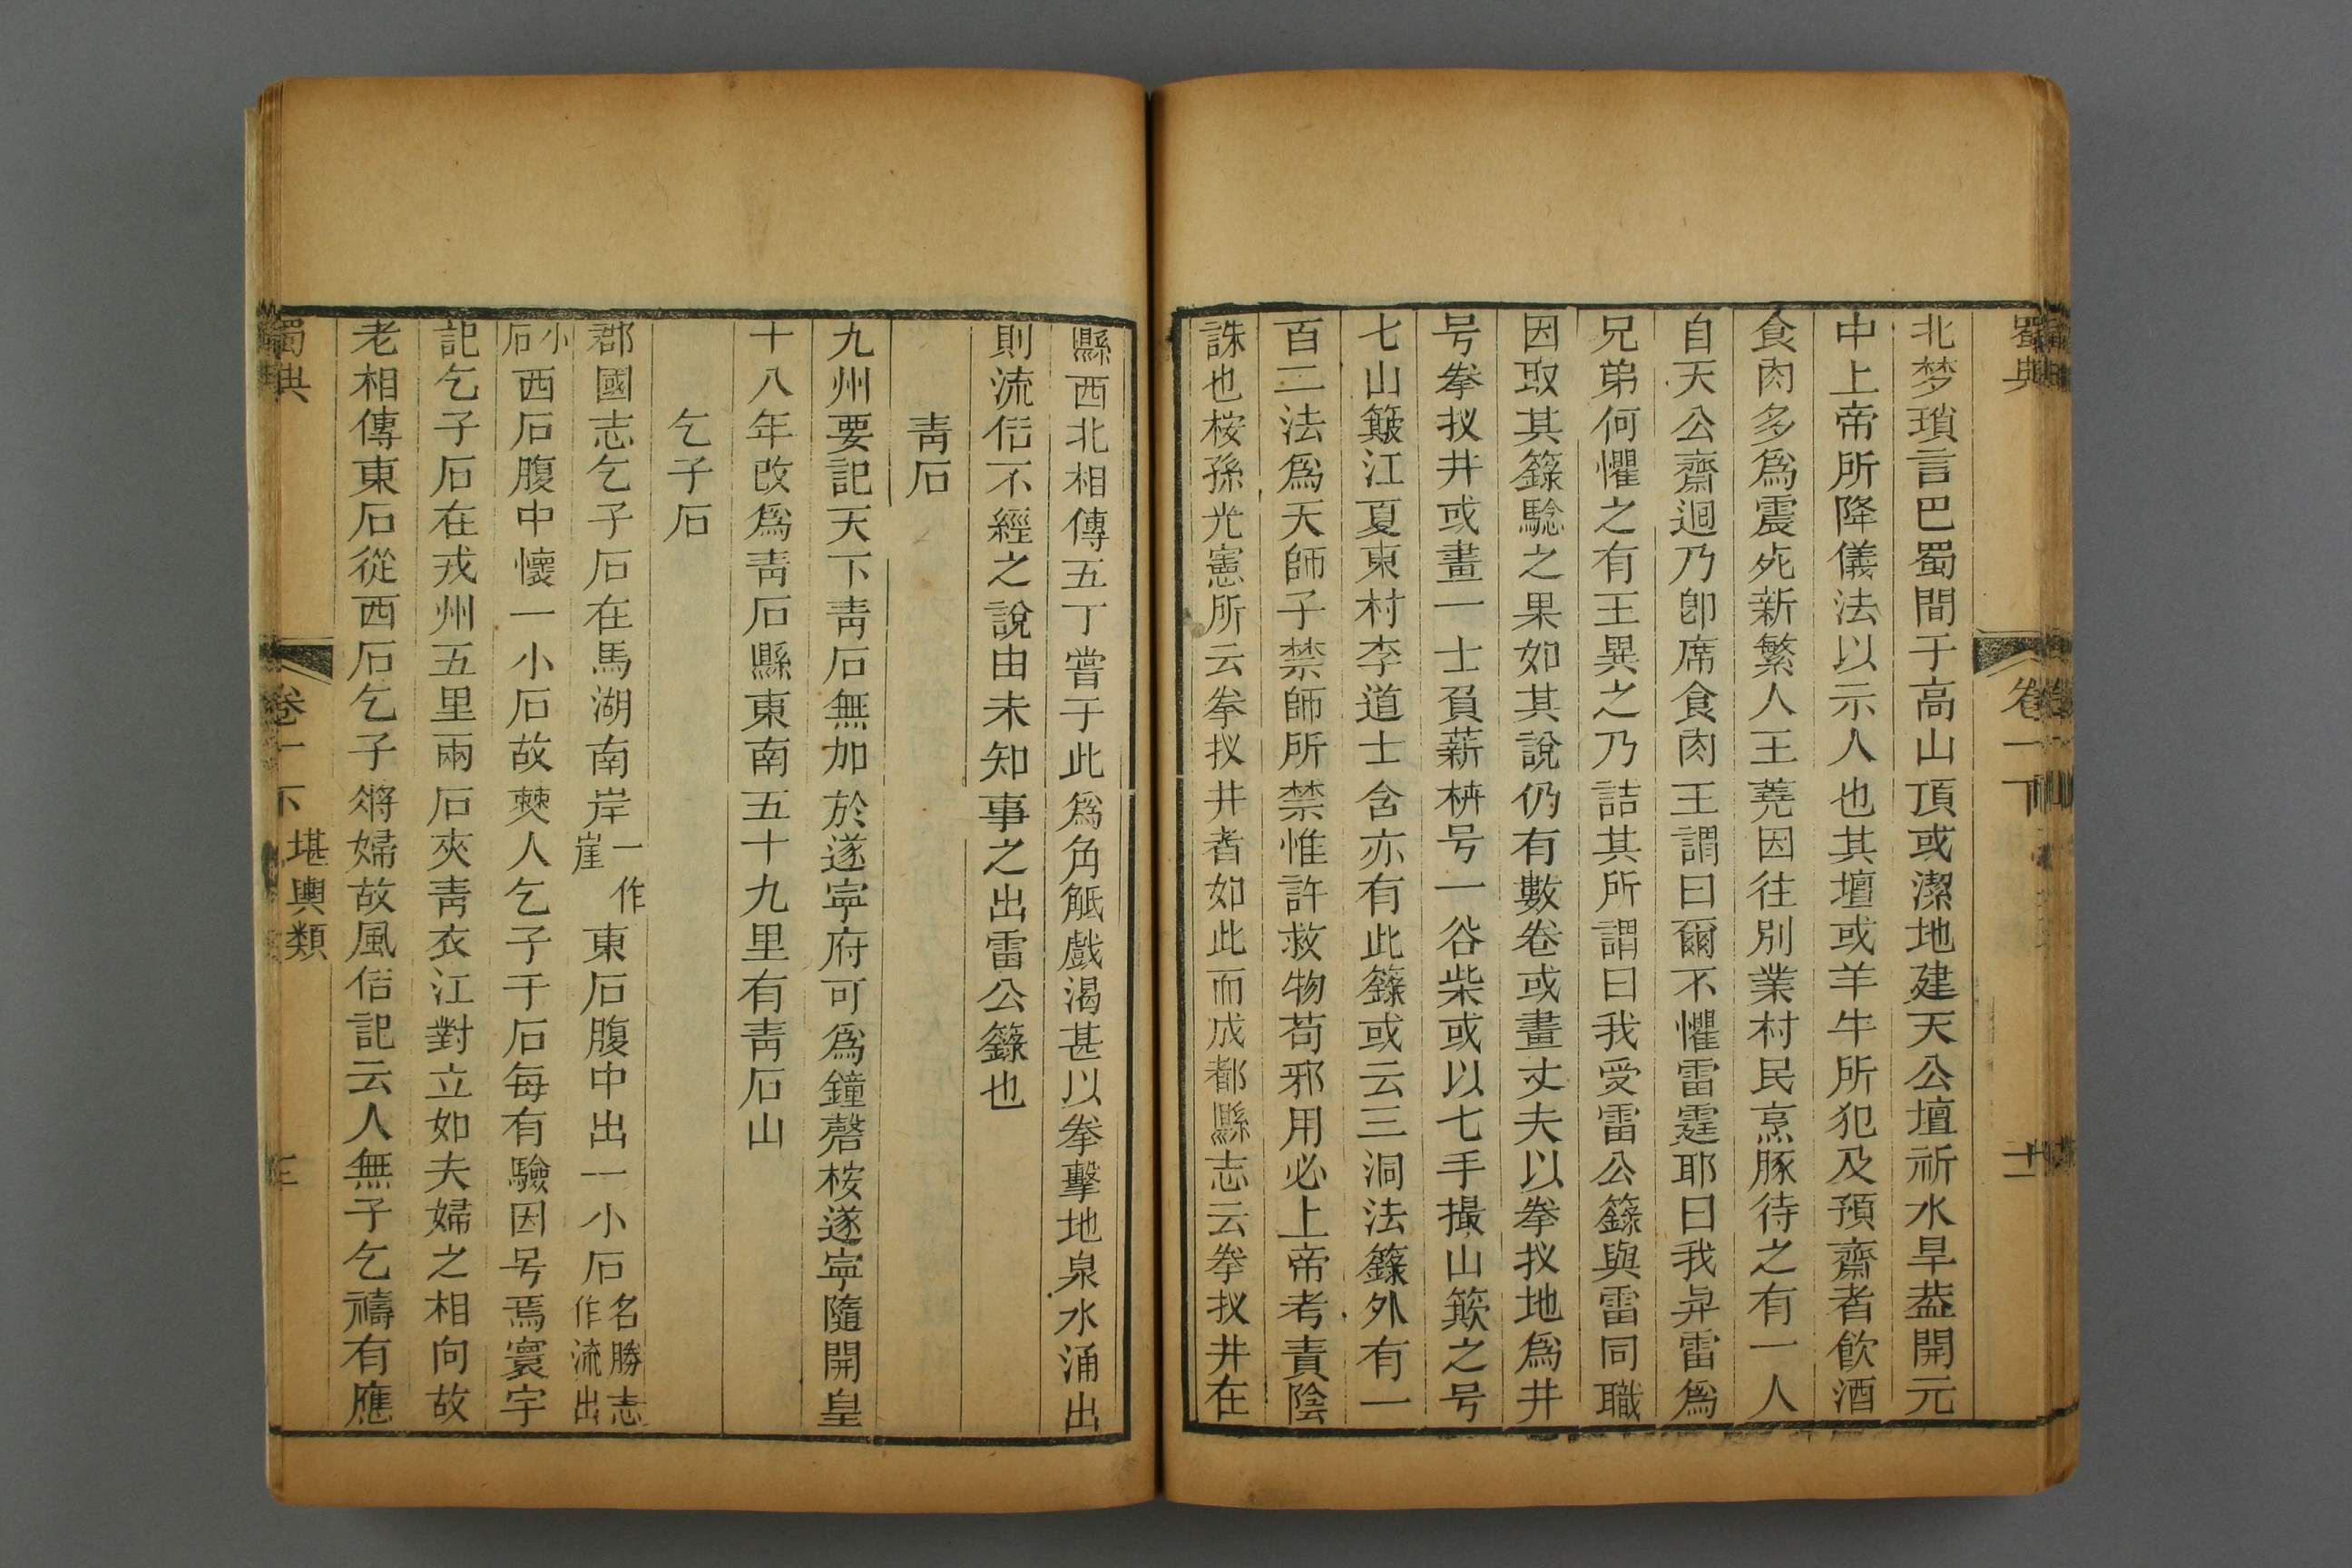 蜀典 卷一下 十二
北梦瑣言巴蜀間于高山頂或潔地建天公壇祈水旱葢開元
中上帝所降儀法以示人也其壇或羊牛所犯及預齋者飮酒
食肉多爲震死新繁人王蕘因往別業村民烹豚待之有一人
自天公齋迴乃卽席食肉王謂曰爾不懼雷霆耶曰我與雷爲
兄弟何懼之有王異之乃詰其所謂曰我受雷公籙與雷同職
因取其籙驗之果如其說仍有數卷或畫丈夫以拳扠地爲井
号拳扠井或畫一士負薪栟号一谷柴或以七手撮山簸之号
七山簸江夏東村李道士舍亦有此籙或云三洞法籙外有一
百二法爲天師子禁師所禁惟許救物苟邪用必上帝考責陰
誅也桉孫光憲所云拳扠井者如此而成都縣志云拳扠井在
縣西北相傳五丁嘗于此爲角觝戲渴甚以拳擊地泉水涌出
則流俗不經之說由未知事之出雷公籙也
靑石
九州要記天下靑石無加於遂寧府可爲鐘磬桉遂寧隨開皇
十八年改爲靑石縣東南五十九里有靑石山
乞子石
郡國志乞子石在馬湖南岸一作崖東石腹中出一小石名勝志作流出
小石西石腹中懷一小石故僰人乞子于石每有驗因号焉寰宇
記乞子石在戎州五里兩石夾靑衣江對立如夫婦之相向故
老相傳東石從西石乞子將婦故風俗記云人無子乞禱有應
蜀典 卷一下 堪輿類